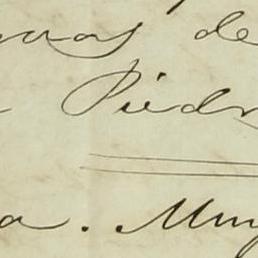 uas de
Piedr
a. Muy